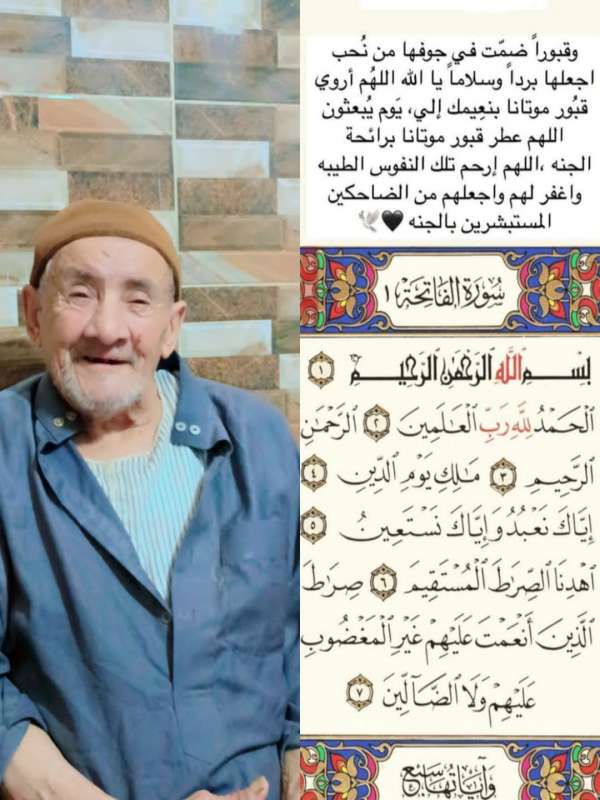 وقبوراً ضمّت في جوفها من نُحب
اجعلها برداً وسلاماً يا الله اللهُم أروي
قبُور موتانا بنعِيمك إلي، يَوم يُبعثون
اللهم عطر قبور موتانا برائحة
الجنه ،اللهم إرحم تلك النفوس الطيبه
واغفر لهم واجعلهم من الضاحكين
المستبشرين بالجنه 🖤🕊️
سُورَةُ الفَاتِحَةِ ١
بِسْمِ اللَّهِ الرَّحْمَٰنِ الرَّحِيمِ ١
الْحَمْدُ لِلَّهِ رَبِّ الْعَالَمِينَ ٢ الرَّحْمَٰنِ
الرَّحِيمِ ٣ مَالِكِ يَوْمِ الدِّينِ ٤
إِيَّاكَ نَعْبُدُ وَإِيَّاكَ نَسْتَعِينُ ٥
اهْدِنَا الصِّرَاطَ الْمُسْتَقِيمَ ٦ صِرَاطَ
الَّذِينَ أَنْعَمْتَ عَلَيْهِمْ غَيْرِ الْمَغْضُوبِ
عَلَيْهِمْ وَلَا الضَّالِّينَ ٧
وَآيَاتُهَا سَبْعٌ